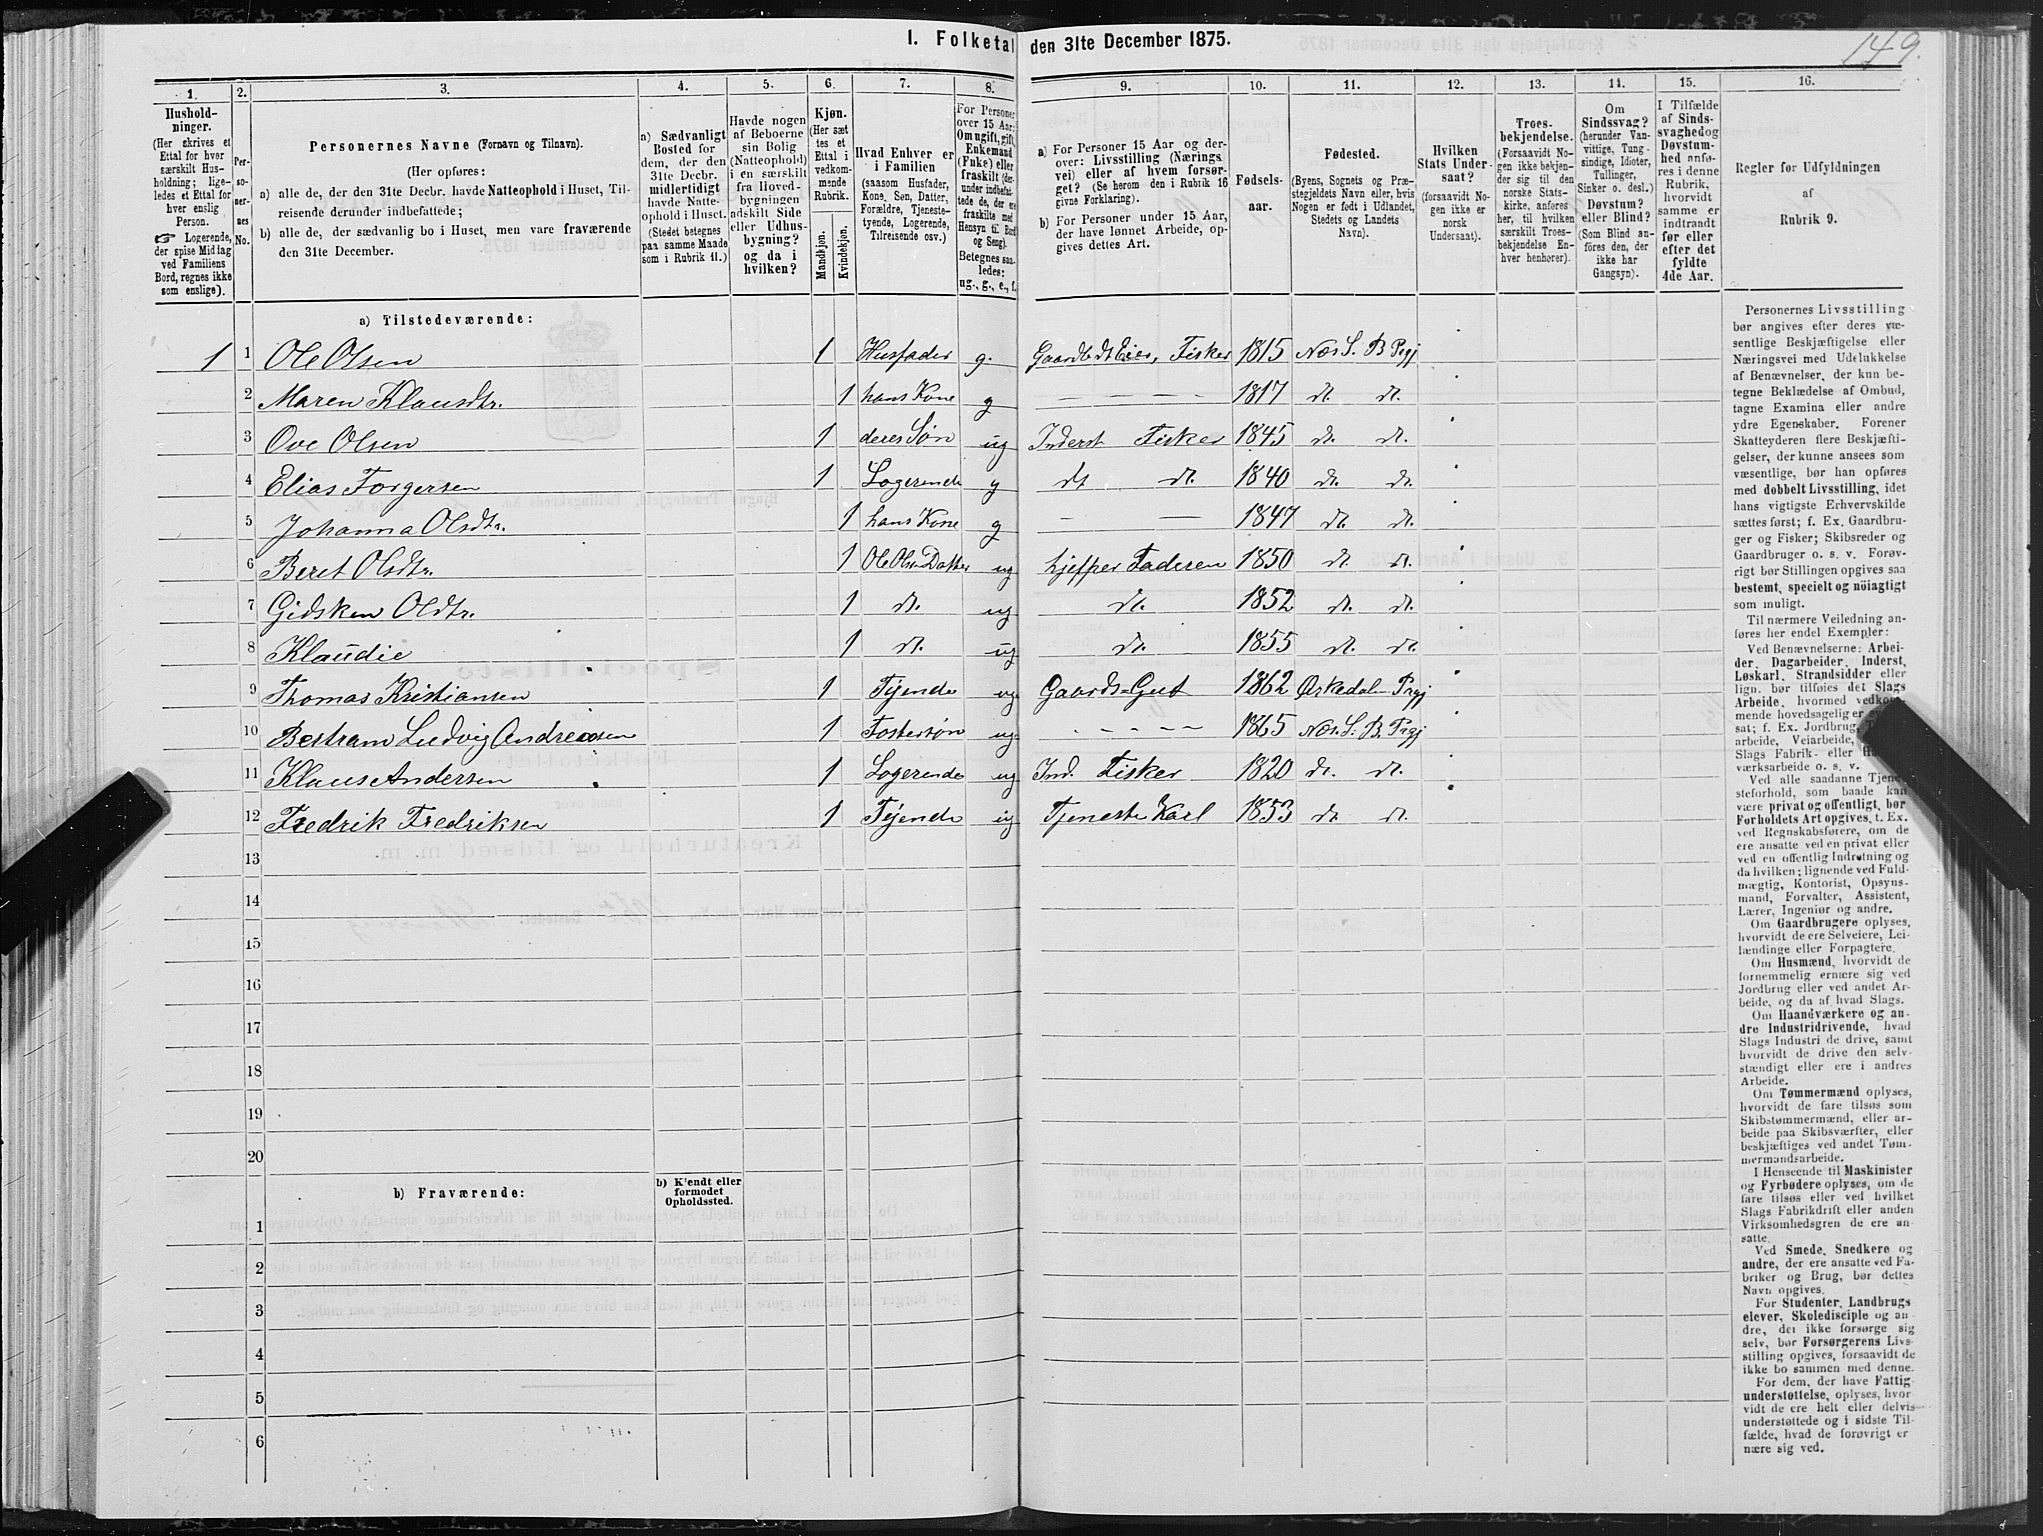 I. Folketal den 31te December 1875.
149.
1.
2.
3.
4.
5.
6.
7.
8.
9.
10.
11.
12.
13.
14.
15.
16.
Hushold-
ninger.
(Her skrives et
Ettal for hver
særskilt Hus-
holdning; lige-
ledes et Ettal for
hver enslig
Person.
☞ Logerende,
der spise Middag
ved Familiens
Bord, regnes ikke
som enslige).
Per-
so-
ner-
nes
No.
Personernes Navne (Fornavn og Tilnavn).
(Her opføres:
a) alle de, der den 31te Decbr. havde Natteophold i Huset, Til-
reisende derunder indbefattede;
b) alle de, der sædvanlig bo i Huset, men vare fraværende
den 31te December.
a) Sædvanligt
Bosted for
dem, der den
31te Decbr.
midlertidigt
havde Natte-
ophold i Huset.
(Stedet betegnes
paa samme Maade
som i Rubrik 11.)
Havde nogen
af Beboerne
sin Bolig
(Natteophold)
i en særskilt
fra Hoved-
bygningen
adskilt Side
eller Udhus-
bygning?
og da i
hvilken?
Kjøn.
(Her sæt-
tes et
Ettal i
vedkom-
mende
Rubrik.
Mandkjøn.
Kvindekjøn.
Hvad Enhver er
i Familien
(saasom Husfader,
Kone, Søn, Datter,
Forældre, Tjeneste-
tyende, Logerende,
Tilreisende osv.)
For Personer
over 15 Aar:
Om ugift, gift,
Enkemand
(Enke) eller
fraskilt (der-
under indbefat-
tede de, der ere
fraskilte med
Hensyn til Bord
og Seng).
Betegnes saa-
ledes:
ug., g., e., f.
a) For Personer 15 Aar og der-
over: Livsstilling (Nærings-
vei) eller af hvem forsør-
get? (Se herom den i Rubrik 16
givne Forklaring).
b) For Personer under 15 Aar,
der have lønnet Arbeide, op-
gives dettes Art.
Fødsels-
aar.
Fødested.
(Byens, Sognets og Præ-
stegjeldets Navn eller, hvis
Nogen er født i Udlandet,
Stedets og Landets
Navn).
Hvilken
Stats Under-
saat?
(forsaavidt No-
gen ikke er
norsk
Undersaat).
Troes-
bekjendelse.
(Forsaavidt No-
gen ikke bekjen-
der sig til den
norske Stats-
kirke, anføres
her, til hvilken
særskilt Troes-
bekjendelse En-
hver henhører).
Om
Sindssvag?
(herunder Van-
vittige, Tung-
sindige, Idioter,
Tullinger,
Sinker o. desl.)
Døvstum?
eller Blind?
(Som Blind an-
føres den, der
ikke har
Gangsyn).
I Tilfælde
af Sinds-
svaghed og
Døvstum-
hed anfø-
res i denne
Rubrik,
hvorvidt
samme er
indtraadt
før eller
efter det
fyldte
4de Aar.
Regler for Udfyldningen
af
Rubrik 9.
a) Tilstedeværende:
1 1 Ole Olsen 1 Husfader g. Gaardbr. Eier, Fisker 1815 Næs S. B Prgj
2 Maren Klausdtr. 1 hans Kone g — — — — 1817 dt. dt.
3 Ove Olsen 1 deres Søn ug Inderst Fisker 1845 dt. dt.
4 Elias Torgersen 1 Logerende g dt dt. 1840 dt. dt.
5 Johanna Olsdtr. 1 hans Kone g — — 1847 dt. dt.
6 Beret Olsdtr. 1 Ole Ols. Datter ug hjelper Faderen 1850 dt. dt.
7 Gidsken Oldtr. 1 dt. ug dt. 1852 dt. dt.
8 Klaudie 1 dt. ug dt. 1855 dt. dt.
9 Thomas Kristiansen 1 Tjende ug Gaards-Gut 1862 Orkedalen Prgj
10 Bertram Ludvig Andreasen 1 Fostersøn ug - - - - 1865 Næs. S. B. Prgj
11 Klaus Andersen 1 Logerende ug Ind. Fisker 1820 dt. dt.
12 Fredrik Fredriksen 1 Tjende ug Tjeneste Karl 1853 dt. dt.
13
14
15
16
17
18
19
20
b) Fraværende:
b) Kjendt eller
formodet
Opholdssted.
1
2
3
4
5
6
Personernes Livsstilling
bør angives efter deres væ-
sentlige Beskjæftigelse eller
Næringsvei med Udelukkelse
af Benævnelser, der kun be-
tegne Beklædelse af Ombud,
tagne Examina eller andre
ydre Egenskaber. Forener
Skatteyderen flere Beskjæfti-
gelser, der kunne ansees som
væsentlige, bør han opføres
med dobbelt Livsstilling, idet
hans vigtigste Erhvervskilde
sættes først; f. Ex. Gaardbru-
ger og Fisker; Skibsreder og
Gaardbruger o. s. v. Forøv-
rigt bør Stillingen opgives saa
bestemt, specielt og nøiagtigt
som muligt.
Til nærmere Veiledning an-
føres her endel Exempler:
Ved Benævnelserne: Arbei-
der, Dagarbeider, Inderst,
Løskarl, Strandsidder eller
lign. bør tilføies det Slags
Arbeide, hvormed vedkom-
mende hovedsagelig er
sat; f. Ex. Jordbrug,
arbeide, Veiarbeide,
Slags Fabrik- eller
værksarbeide o. s. v.
Ved alle saadanne Tjene-
steforhold, som baade kan
være privat og offentligt, bør
Forholdets Art opgives, t. Ex.
ved Regnskabsførere, om de
ere ansatte ved en privat eller
ved en offentlig Indretning og
da hvilken; lignende ved Fuld-
mægtig, Kontorist, Opsyns-
mand, Forvalter, Assistent,
Lærer, Ingeniør og andre.
Om Gaardbrugere oplyses,
hvorvidt de ere Selveiere, Lei-
lændinge eller Forpagtere.
Om Husmænd, hvorvidt de
fornemmelig ernære sig ved
Jordbrug eller ved andet Ar-
beide, og da af hvad Slags.
Om Haandværkere og an-
dre Industridrivende, hvad
Slags Industri de drive, samt
hvorvidt de drive den selv-
stændigt eller ere i andres
Arbeide.
Om Tømmermænd oplyses,
hvorvidt de fare tilsøs som
Skibstømmermænd, eller ar-
beide paa Skibsværfter, eller
beskjæftiges ved andet Tøm-
mermandsarbeide.
I Henseende til Maskinister
og Fyrbødere oplyses, om de
fare tilsøs eller ved hvilket
Slags Fabrikdrift eller anden
Virksomhedsgren de ere an-
satte.
Ved Smede, Snedkere og
andre, der ere ansatte ved Fa-
briker og Brug, bør dettes
Navn opgives.
For Studenter, Landbrugs
elever, Skoledisciple og an-
dre, der ikke forsørge sig
selv, bør Forsørgerens Livs-
stilling opgives, forsaavidt de
ikke bo sammen med denne.
For dem, der have Fattig-
understøttelse, oplyses, hvor-
vidt de ere helt eller delvis
understøttede og i sidste Til-
fælde, hvad de forøvrigt er
nære sig ved.